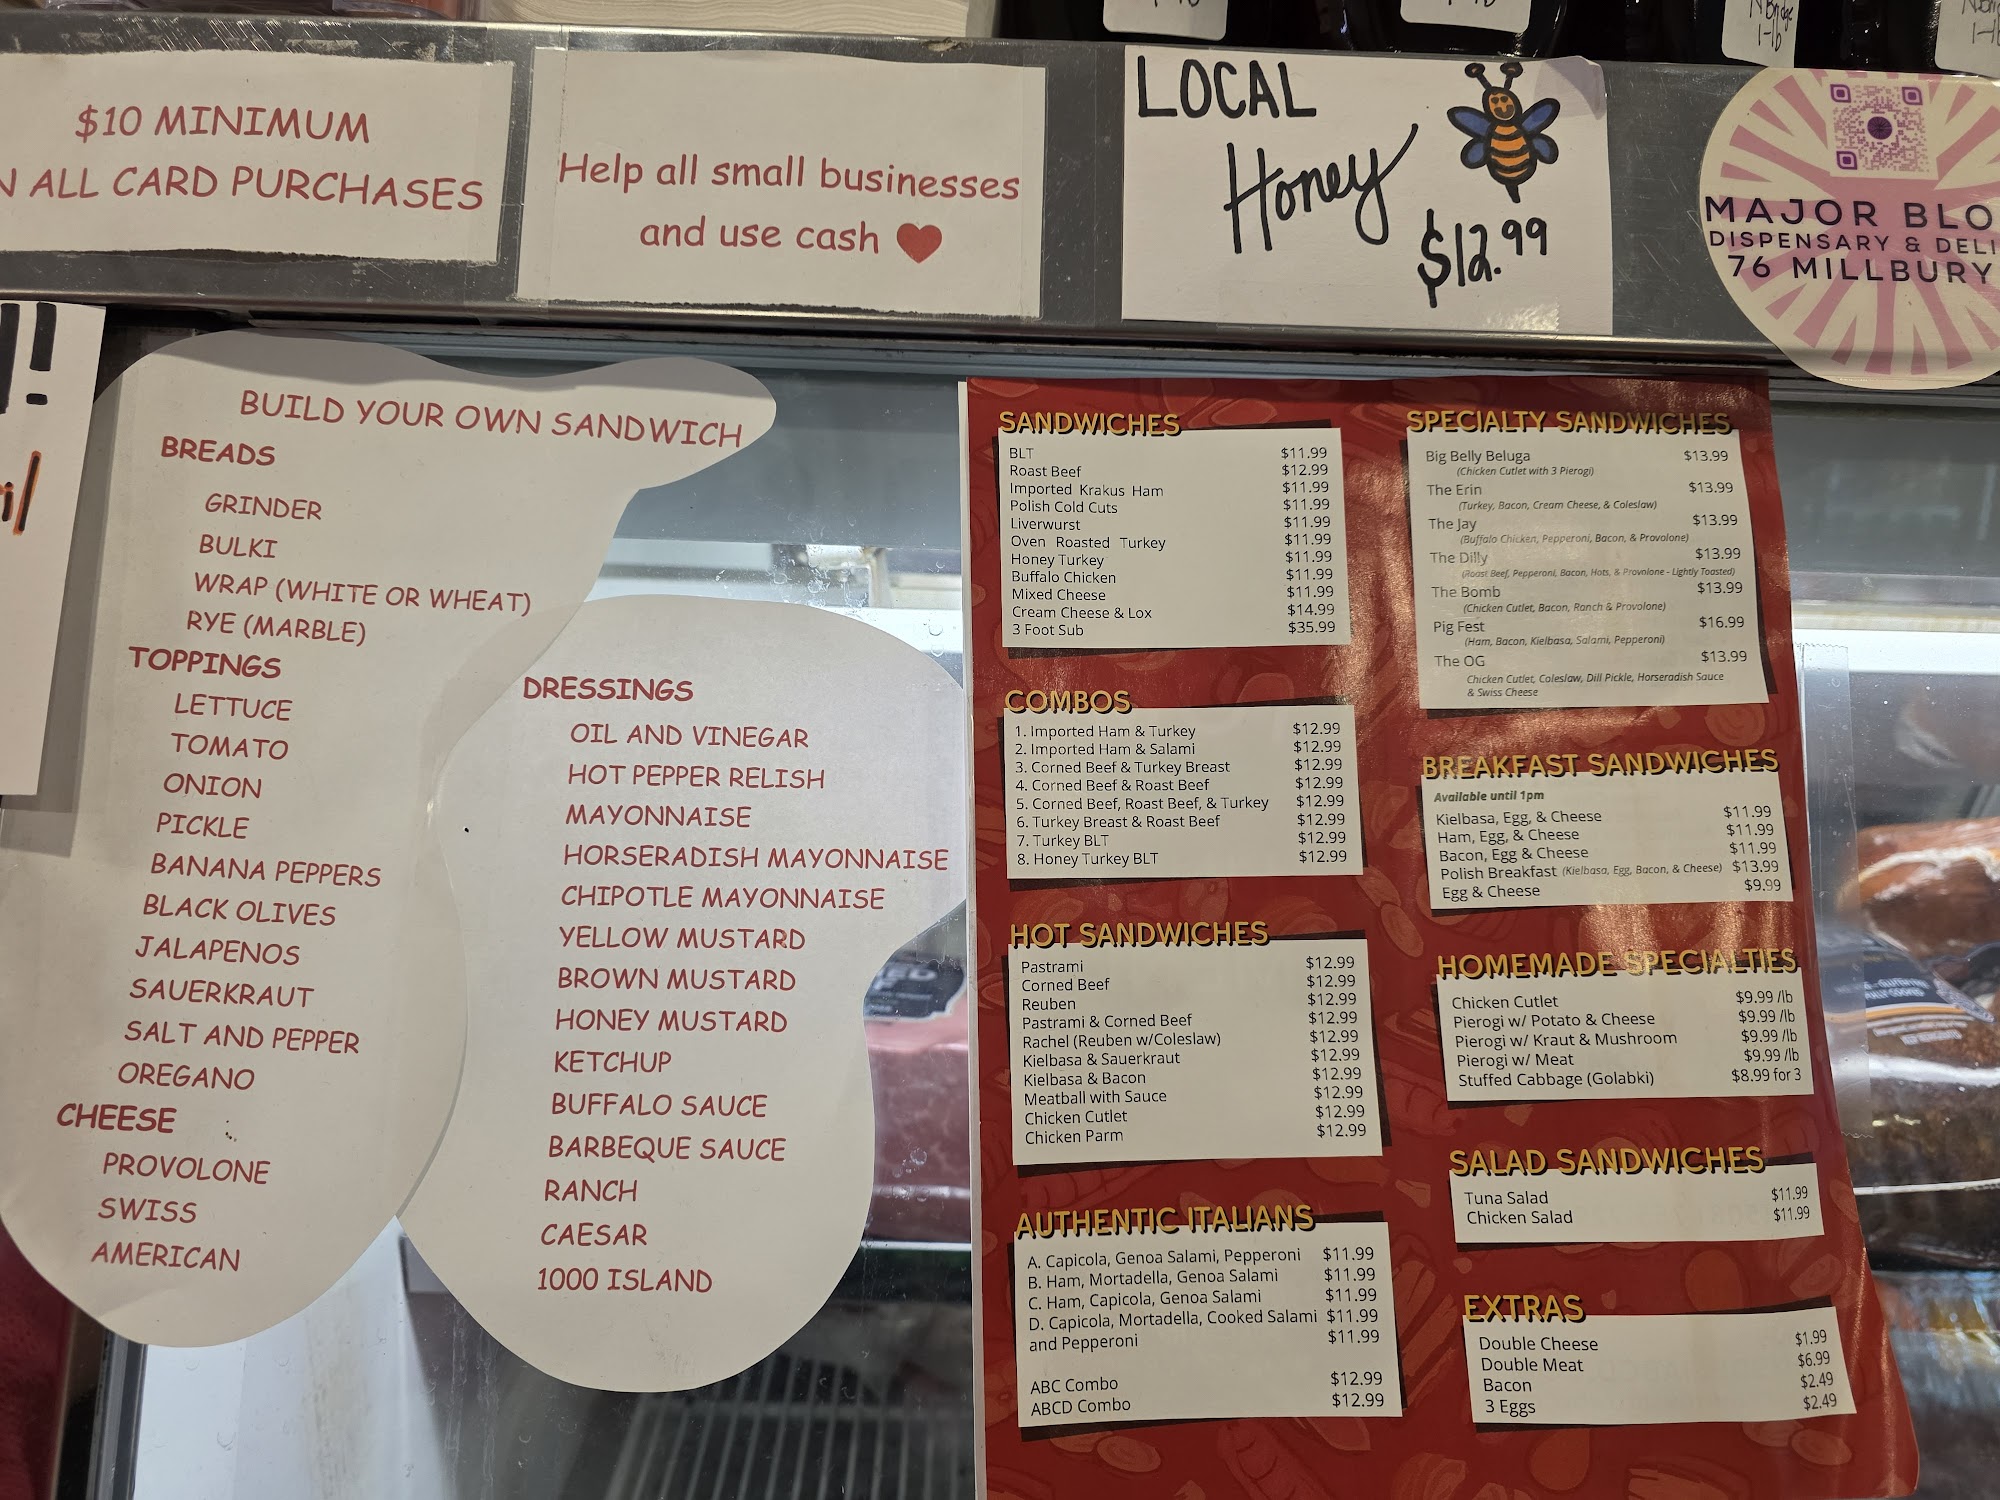 $10 MINIMUM
ALL CARD PURCHASES
Help all small businesses
and use cash
LOCAL
Honey
$12.99
N Bridge
1-lb
MAJOR BLO
DISPENSARY & DELI
76 MILLBURY
BUILD YOUR OWN SANDWICH
BREADS
GRINDER
BULKI
WRAP (WHITE OR WHEAT)
RYE (MARBLE)
TOPPINGS
LETTUCE
TOMATO
ONION
PICKLE
BANANA PEPPERS
BLACK OLIVES
JALAPENOS
SAUERKRAUT
SALT AND PEPPER
OREGANO
CHEESE
PROVOLONE
SWISS
AMERICAN
DRESSINGS
OIL AND VINEGAR
HOT PEPPER RELISH
MAYONNAISE
HORSERADISH MAYONNAISE
CHIPOTLE MAYONNAISE
YELLOW MUSTARD
BROWN MUSTARD
HONEY MUSTARD
KETCHUP
BUFFALO SAUCE
BARBEQUE SAUCE
RANCH
CAESAR
1000 ISLAND
SANDWICHES
BLT $11.99
Roast Beef $12.99
Imported Krakus Ham $11.99
Polish Cold Cuts $11.99
Liverwurst $11.99
Oven Roasted Turkey $11.99
Honey Turkey $11.99
Buffalo Chicken $11.99
Mixed Cheese $11.99
Cream Cheese & Lox $14.99
3 Foot Sub $35.99
COMBOS
1. Imported Ham & Turkey $12.99
2. Imported Ham & Salami $12.99
3. Corned Beef & Turkey Breast $12.99
4. Corned Beef & Roast Beef $12.99
5. Corned Beef, Roast Beef, & Turkey $12.99
6. Turkey Breast & Roast Beef $12.99
7. Turkey BLT $12.99
8. Honey Turkey BLT $12.99
HOT SANDWICHES
Pastrami $12.99
Corned Beef $12.99
Reuben $12.99
Pastrami & Corned Beef $12.99
Rachel (Reuben w/Coleslaw) $12.99
Kielbasa & Sauerkraut $12.99
Kielbasa & Bacon $12.99
Meatball with Sauce $12.99
Chicken Cutlet $12.99
Chicken Parm $12.99
AUTHENTIC ITALIANS
A. Capicola, Genoa Salami, Pepperoni $11.99
B. Ham, Mortadella, Genoa Salami $11.99
C. Ham, Capicola, Genoa Salami $11.99
D. Capicola, Mortadella, Cooked Salami $11.99
and Pepperoni $11.99
ABC Combo $12.99
ABCD Combo $12.99
SPECIALTY SANDWICHES
Big Belly Beluga $13.99
(Chicken Cutlet with 3 Pierogi)
The Erin $13.99
(Turkey, Bacon, Cream Cheese, & Coleslaw)
The Jay $13.99
(Buffalo Chicken, Pepperoni, Bacon, & Provolone)
The Dilly $13.99
(Roast Beef, Pepperoni, Bacon, Hots, & Provolone - Lightly Toasted)
The Bomb $13.99
(Chicken Cutlet, Bacon, Ranch & Provolone)
Pig Fest $16.99
(Ham, Bacon, Kielbasa, Salami, Pepperoni)
The OG $13.99
Chicken Cutlet, Coleslaw, Dill Pickle, Horseradish Sauce
& Swiss Cheese
BREAKFAST SANDWICHES
Available until 1pm
Kielbasa, Egg, & Cheese $11.99
Ham, Egg, & Cheese $11.99
Bacon, Egg & Cheese $11.99
Polish Breakfast (Kielbasa, Egg, Bacon, & Cheese) $13.99
Egg & Cheese $9.99
HOMEMADE SPECIALTIES
Chicken Cutlet $9.99 /lb
Pierogi w/ Potato & Cheese $9.99 /lb
Pierogi w/ Kraut & Mushroom $9.99 /lb
Pierogi w/ Meat $9.99 /lb
Stuffed Cabbage (Golabki) $8.99 for 3
SALAD SANDWICHES
Tuna Salad $11.99
Chicken Salad $11.99
EXTRAS
Double Cheese $1.99
Double Meat $6.99
Bacon $2.49
3 Eggs $2.49